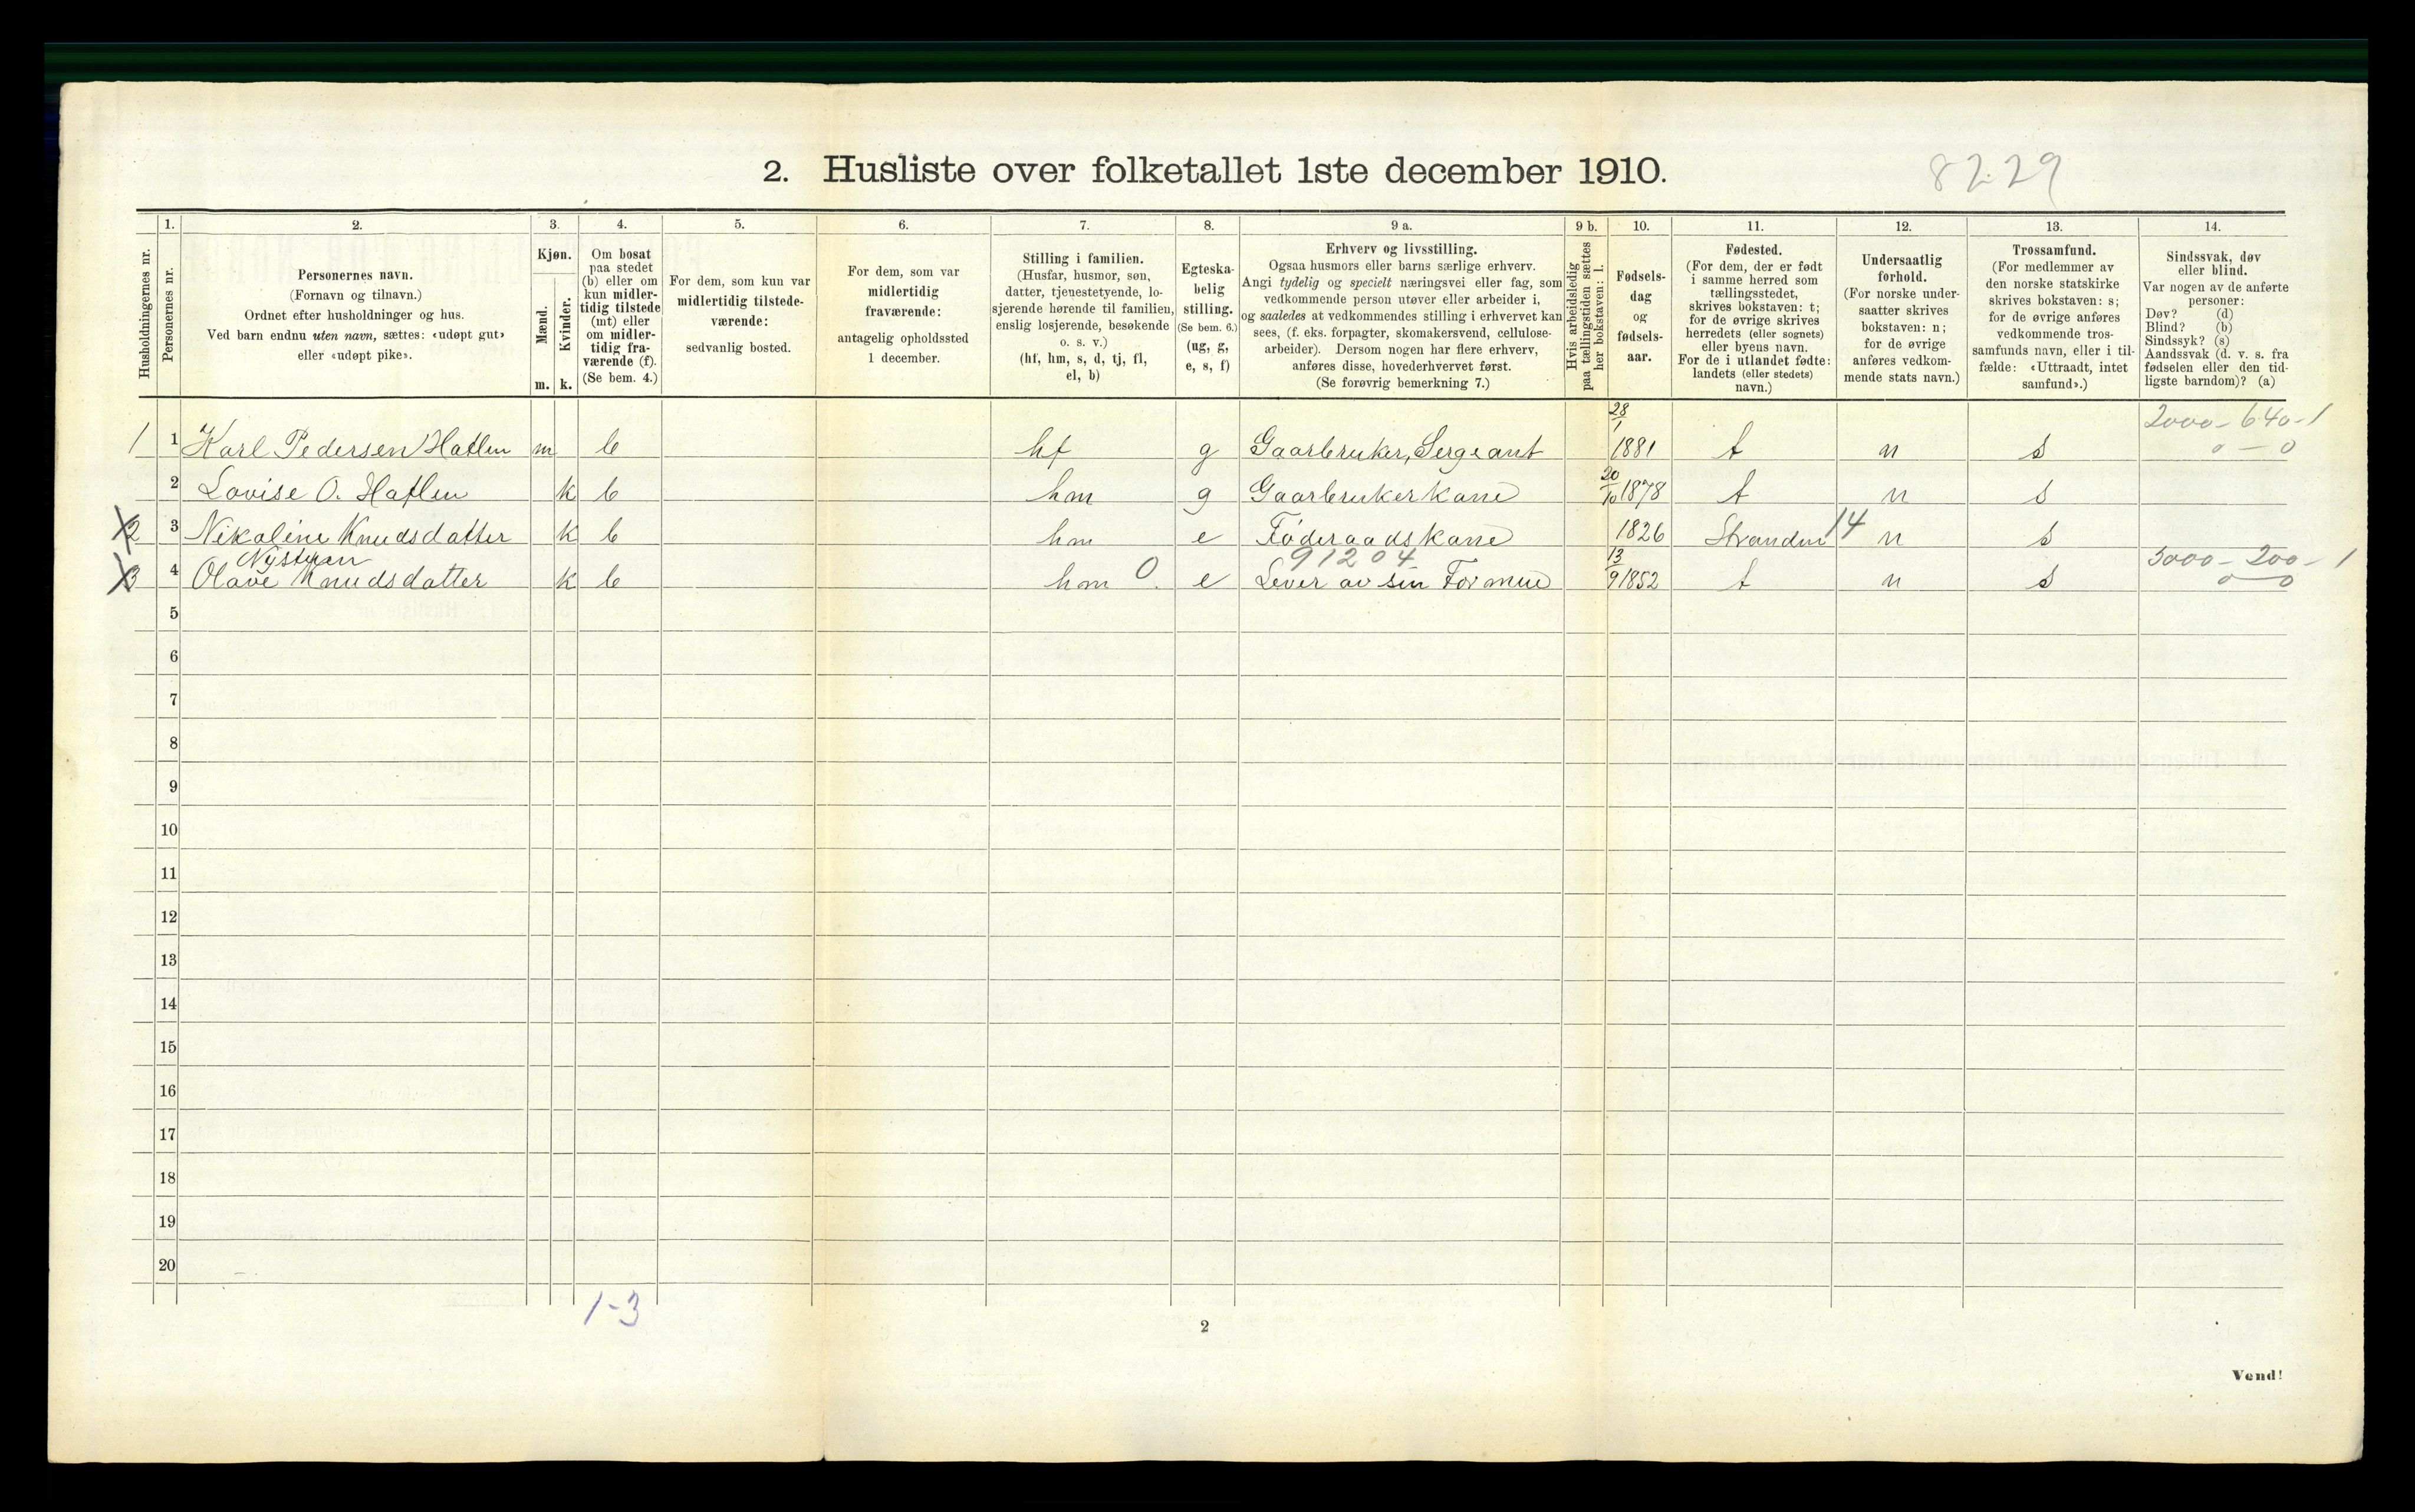 2. Husliste over folketallet 1ste december 1910.
8229
Husholdningernes nr.
1.
Personernes nr.
2.
Personernes navn.
(Fornavn og tilnavn.)
Ordnet efter husholdninger og hus.
Ved barn endnu uten navn, sættes: «udøpt gut»
eller «udøpt pike».
3.
Kjøn.
Mænd.
m.
Kvinder.
k.
4.
Om bosat
paa stedet
(b) eller om
kun midler-
tidig tilstede
(mt) eller
om midler-
tidig fra-
værende (f).
(Se bem. 4.)
5.
For dem, som kun var
midlertidig tilstede-
værende:
sedvanlig bosted.
6.
For dem, som var
midlertidig
fraværende:
antagelig opholdssted
1 december.
7.
Stilling i familien.
(Husfar, husmor, søn,
datter, tjenestetyende, lo-
sjerende hørende til familien,
enslig losjerende, besøkende
o. s. v.)
(hf, hm, s, d, tj, fl,
el, b)
8.
Egteska-
belig
stilling.
(Se bem. 6.)
(ug, g,
e, s, f)
9 a.
Erhverv og livsstilling.
Ogsaa husmors eller barns særlige erhverv.
Angi tydelig og specielt næringsvei eller fag, som
vedkommende person utøver eller arbeider i,
og saaledes at vedkommendes stilling i erhvervet kan
sees, (f. eks. forpagter, skomakersvend, cellulose-
arbeider). Dersom nogen har flere erhverv,
anføres disse, hovederhvervet først.
(Se forøvrig bemerkning 7.)
9 b.
Hvis arbeidsledig
paa tællingstiden sættes
her bokstaven: l.
10.
Fødsels-
dag
og
fødsels-
aar.
11.
Fødested.
(For dem, der er født
i samme herred som
tællingsstedet,
skrives bokstaven: t;
for de øvrige skrives
herredets (eller sognets)
eller byens navn.
For de i utlandet fødte:
landets (eller stedets)
navn.)
12.
Undersaatlig
forhold.
(For norske under-
saatter skrives
bokstaven: n;
for de øvrige
anføres vedkom-
mende stats navn.)
13.
Trossamfund.
(For medlemmer av
den norske statskirke
skrives bokstaven: s;
for de øvrige anføres
vedkommende tros-
samfunds navn, eller i til-
fælde: «Uttraadt, intet
samfund».)
14.
Sindssvak, døv
eller blind.
Var nogen av de anførte
personer:
Døv? (d)
Blind? (b)
Sindssyk? (s)
Aandssvak (d. v. s. fra
fødselen eller den tid-
ligste barndom)? (a)
2000 - 640 - 1
0 - 0
1 1 Karl Pedersen Hatlen m b hf g Gaarbruker, Sergeant 28/1 1881 t n s
2 Lovise O. Hatlen k b hm g Gaarbrukerkane 20/10 1878 t n s
2 3 Nikoline Knudsdatter k b hm e Føderaadskane 1826 Stranden 14 n s
91204
3000 - 200 - 1
0 0
3 4 Olave Knudsdatter k b hm 0 e Lever av sin Formue 13/9 1852 t n s
5
6
7
8
9
10
11
12
13
14
15
16
17
18
19
20
1-3
2
Vend!